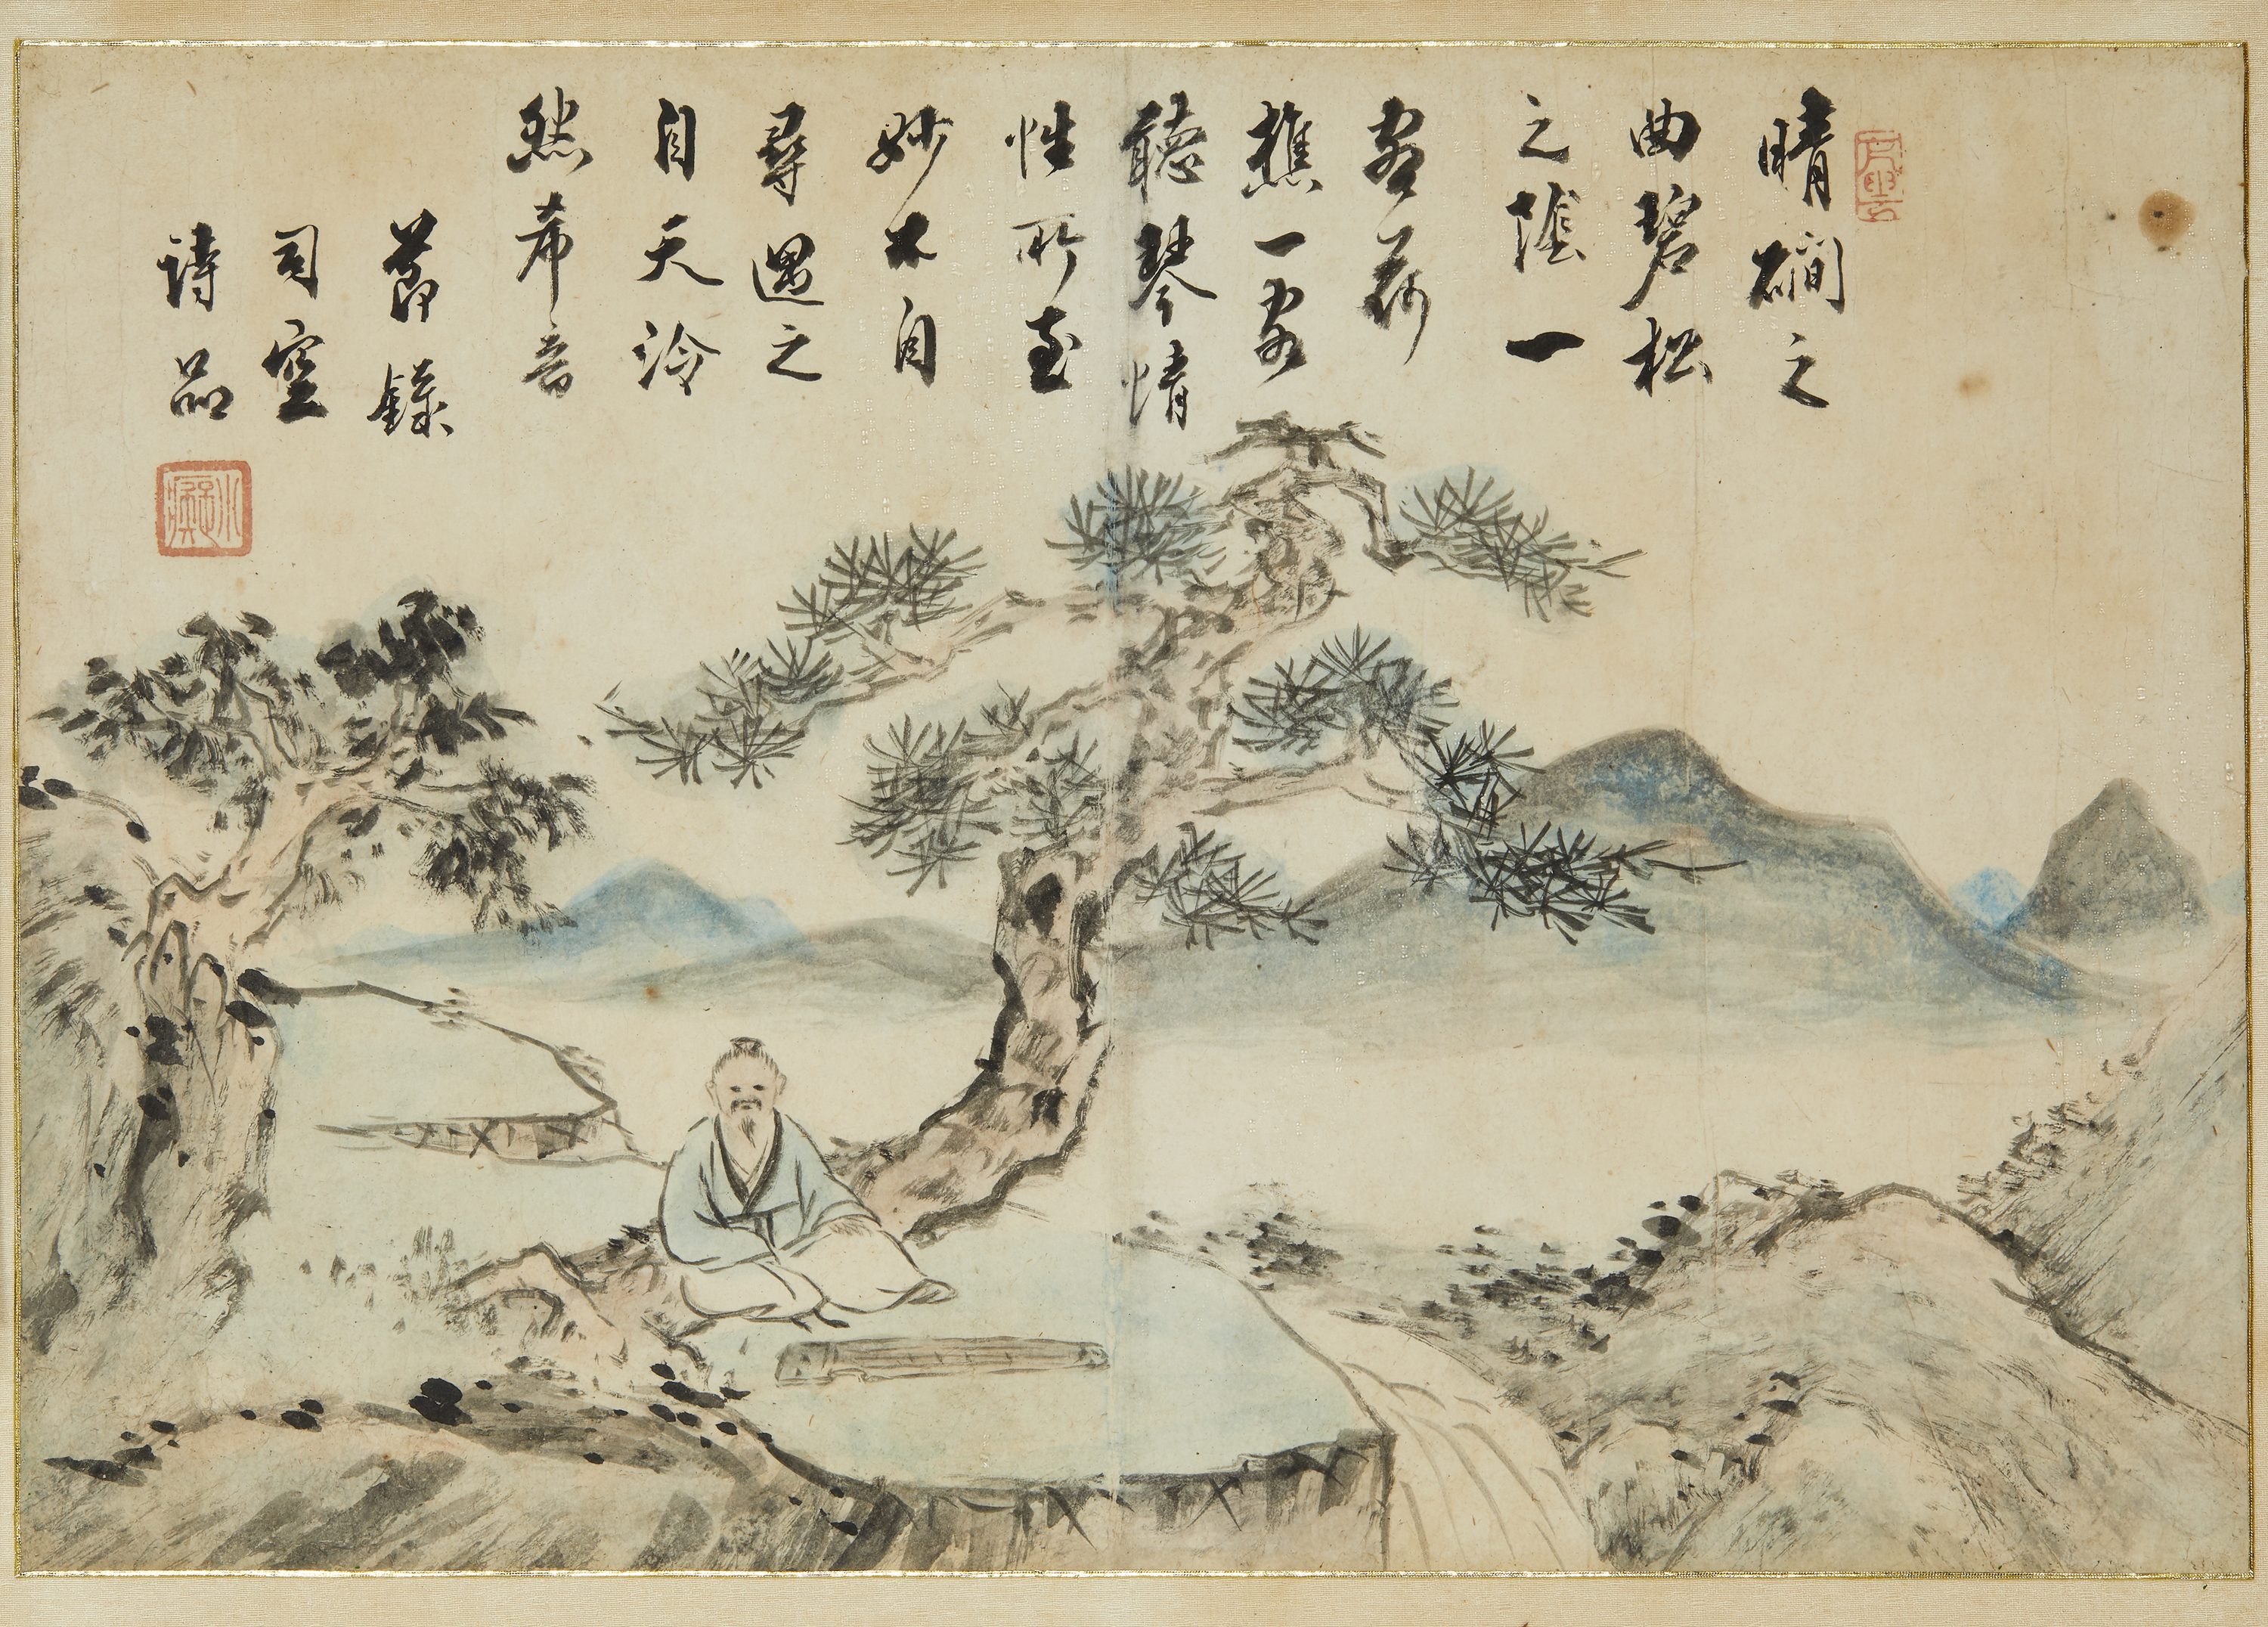 晴磵之
曲碧松
之陰一
客荷
樵一客
聽琴情
性所至
妙不自
尋遇之
自天泠
然希音
節錄
司空
詩品